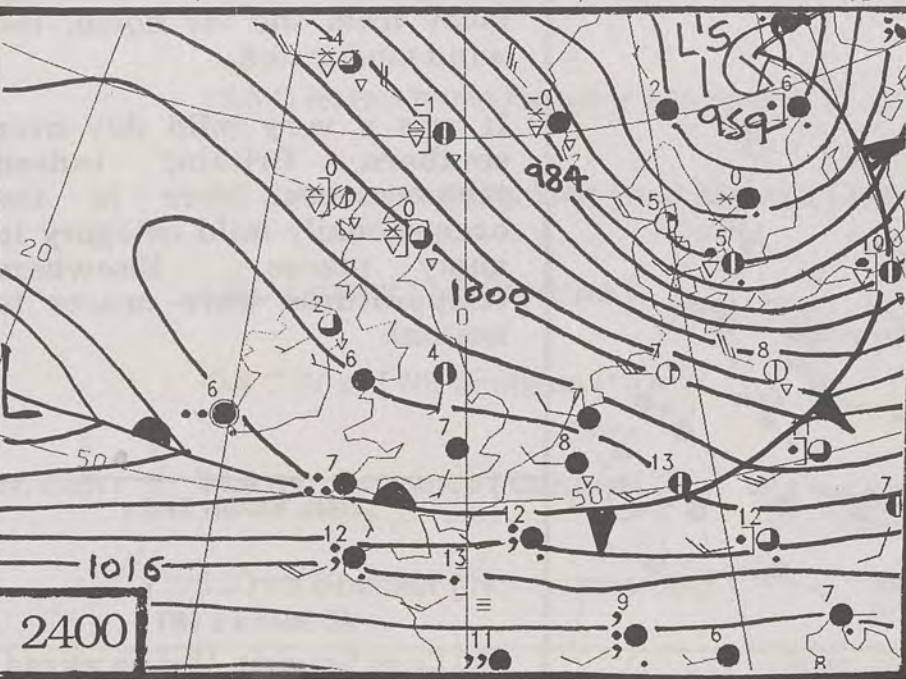 -4
L'S
2
6
959
-1
-0
984
0
0
5
5
10
0
20
1000
0
2
6
4
7
8
6
7
8
13
50
7
50
7
12
12
12
13
1016
9
7
2400
11
6
R